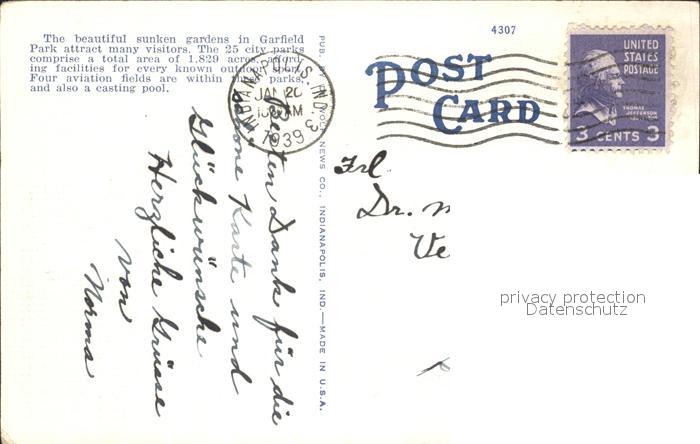 The beautiful sunken gardens in Garfield
Park attract many visitors. The 25 city parks
comprise a total area of 1,829 acres, afford-
ing facilities for every known outdoor sport.
Four aviation fields are within these parks,
and also a casting pool.
4307
POST
CARD
UNITED
STATES
POSTAGE
THOMAS
JEFFERSON
3 CENTS 3
INDIANAPOLIS, IND.
JAN 20
AM
1939
3
NEWS CO., INDIANAPOLIS, IND.—MADE IN U.S.A.
Besten Dank für die
schöne Karte und
Glückwünsche
Herzliche Grüsse
von
Norma
Frl
Dr.
privacy protection
Datenschutz